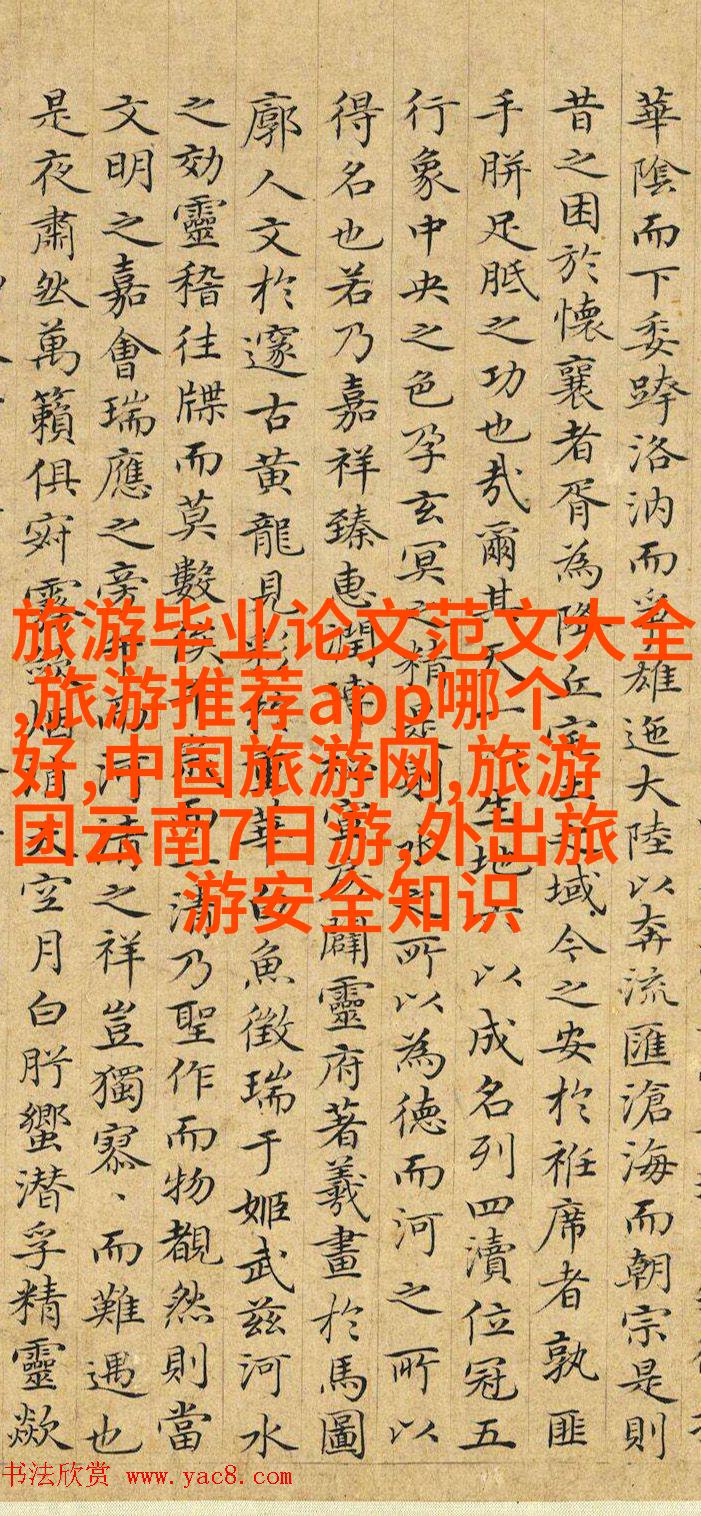 華陰而下委跨洛汭而雄迤大陸以奔流匯滄海而朝宗是則
昔之困於懷襄者胥為降丘宅土之域今之安於袵席者孰匪
手胼足胝之功也哉爾其天一生地六以成名列四瀆位冠五
行象中央之色孕玄冥之精是則水之所以為德而河之所以
得名也若乃嘉祥臻惠潤闢靈府著羲畫於馬圖
廓人文於邃古黃龍見重華白魚徵瑞于姬武茲河水
之効靈稽往牒而莫數俟千歲而一清乃聖作而物覩然則當
文明之嘉會瑞應之旁午而河清之祥豈獨寥、而難遇也
是夜肅然萬籟俱寂露烟消天空月白肸蠁潛孚精靈歘
旅游毕业论文范文大全
,旅游推荐app哪个
好,中国旅游网,旅游
团云南7日游,外出旅
游安全知识
书法欣赏 www.yac8.com